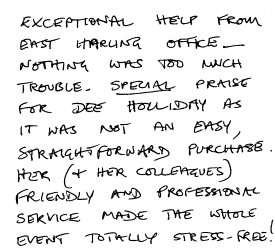 EXCEPTIONAL HELP FROM
EAST HARLING OFFICE –
NOTHING WAS TOO MUCH
TROUBLE. SPECIAL PRAISE
FOR DEE HOLLIDAY AS
IT WAS NOT AN EASY,
STRAIGHTFORWARD PURCHASE.
HER (+ HER COLLEAGUES)
FRIENDLY AND PROFESSIONAL
SERVICE MADE THE WHOLE
EVENT TOTALLY STRESS-FREE!